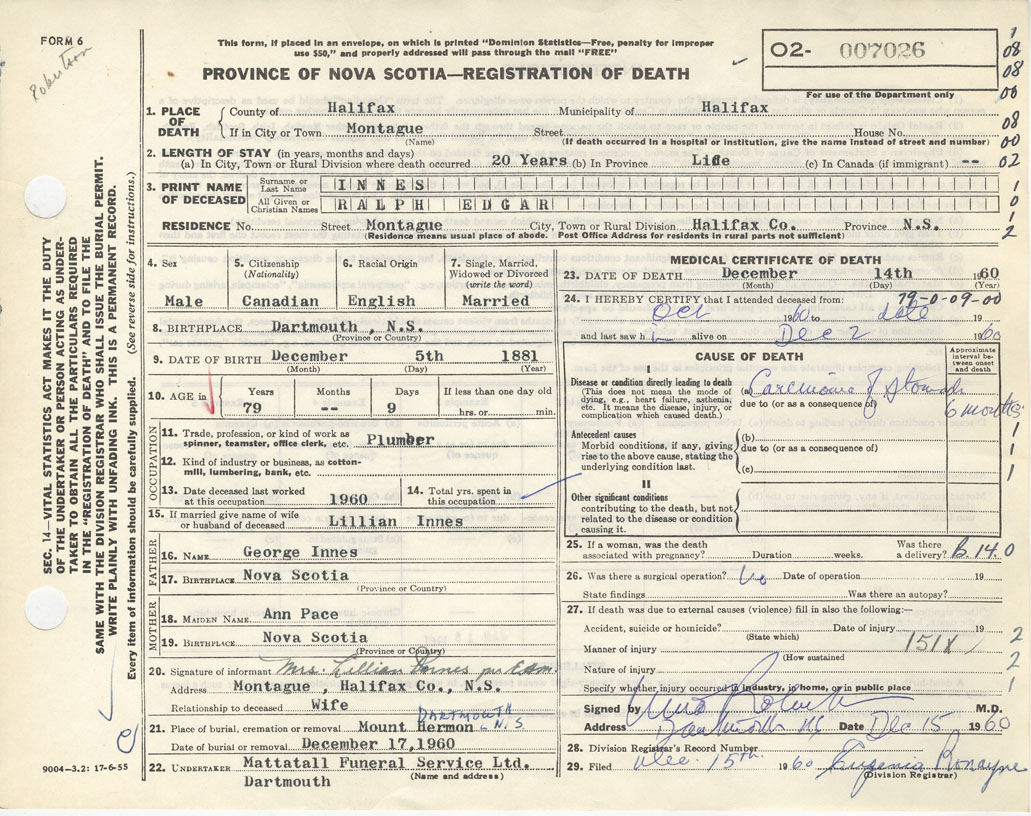 FORM 6
Robertson
This form, if placed in an envelope, on which is printed "Dominion Statistics—Free, penalty for improper
use $50," and properly addressed will pass through the mail "FREE"
PROVINCE OF NOVA SCOTIA—REGISTRATION OF DEATH
O2- 007026
For use of the Department only
1
08
08
00
08
00
02
1
0
1
2
SEC. 14—VITAL STATISTICS ACT MAKES IT THE DUTY
OF THE UNDERTAKER OR PERSON ACTING AS UNDER-
TAKER TO OBTAIN ALL THE PARTICULARS REQUIRED
IN THE "REGISTRATION OF DEATH" AND TO FILE THE
SAME WITH THE DIVISION REGISTRAR WHO SHALL ISSUE THE BURIAL PERMIT.
WRITE PLAINLY WITH UNFADING INK. THIS IS A PERMANENT RECORD.
Every item of information should be carefully supplied. (See reverse side for instructions.)
1. PLACE OF DEATH
County of Halifax Municipality of Halifax
If in City or Town Montague Street House No.
(Name) (If death occurred in a hospital or institution, give the name instead of street and number)
2. LENGTH OF STAY (in years, months and days)
(a) In City, Town or Rural Division where death occurred 20 Years (b) In Province Life (c) In Canada (if immigrant) --
3. PRINT NAME OF DECEASED
Surname or Last Name INNES
All Given or Christian Names RALPH EDGAR
RESIDENCE No. Street Montague City, Town or Rural Division Halifax Co. Province N.S.
(Residence means usual place of abode. Post Office Address for residents in rural parts not sufficient)
4. Sex
Male
5. Citizenship
(Nationality)
Canadian
6. Racial Origin
English
7. Single, Married,
Widowed or Divorced
(write the word)
Married
8. BIRTHPLACE Dartmouth , N.S.
(Province or Country)
9. DATE OF BIRTH December 5th 1881
(Month) (Day) (Year)
10. AGE in
Years Months Days If less than one day old
79 -- 9 hrs. or min.
OCCUPATION
11. Trade, profession, or kind of work as
spinner, teamster, office clerk, etc. Plumber
12. Kind of industry or business, as cotton-
mill, lumbering, bank, etc.
13. Date deceased last worked
at this occupation 1960
14. Total yrs. spent in
this occupation
15. If married give name of wife
or husband of deceased Lillian Innes
FATHER
16. NAME George Innes
17. BIRTHPLACE Nova Scotia
(Province or Country)
MOTHER
18. MAIDEN NAME Ann Pace
19. BIRTHPLACE Nova Scotia
(Province or Country)
20. Signature of informant Mrs. Lillian Innes per
Address Montague , Halifax Co., N.S.
Relationship to deceased Wife
21. Place of burial, cremation or removal Mount Hermon DARTMOUTH N.S.
Date of burial or removal December 17,1960
22. UNDERTAKER Mattatall Funeral Service Ltd.
(Name and address)
Dartmouth
9004-3.2: 17-6-55
MEDICAL CERTIFICATE OF DEATH
23. DATE OF DEATH December 14th 1960
(Month) (Day) (Year)
24. I HEREBY CERTIFY that I attended deceased from: 79-0-09-00
Oct 1960 to date 19
and last saw h alive on Dec 2 1960
CAUSE OF DEATH
Approximate
interval be-
tween onset
and death
I
Disease or condition directly leading to death
(This does not mean the mode of
dying, e.g., heart failure, asthenia,
etc. It means the disease, injury, or
complication which caused death.)
(a) Carcinoma of Stomach
due to (or as a consequence of) 6 months
Antecedent causes
Morbid conditions, if any, giving
rise to the above cause, stating the
underlying condition last.
(b)
due to (or as a consequence of)
(c)
II
Other significant conditions
contributing to the death, but not
related to the disease or condition
causing it.
1
1
1
25. If a woman, was the death
associated with pregnancy? Duration weeks. Was there
a delivery? B.14.0
26. Was there a surgical operation? No Date of operation 19
State findings Was there an autopsy?
27. If death was due to external causes (violence) fill in also the following:—
Accident, suicide or homicide? Date of injury 19
(State which)
Manner of injury 151X
(How sustained)
Nature of injury
Specify whether injury occurred in industry, in home, or in public place
2
2
1
Signed by M.D.
Address Dartmouth NS Date Dec 15 1960
28. Division Registrar's Record Number
29. Filed Dec. 15th 1960 Eugenia Ronayne
(Division Registrar)